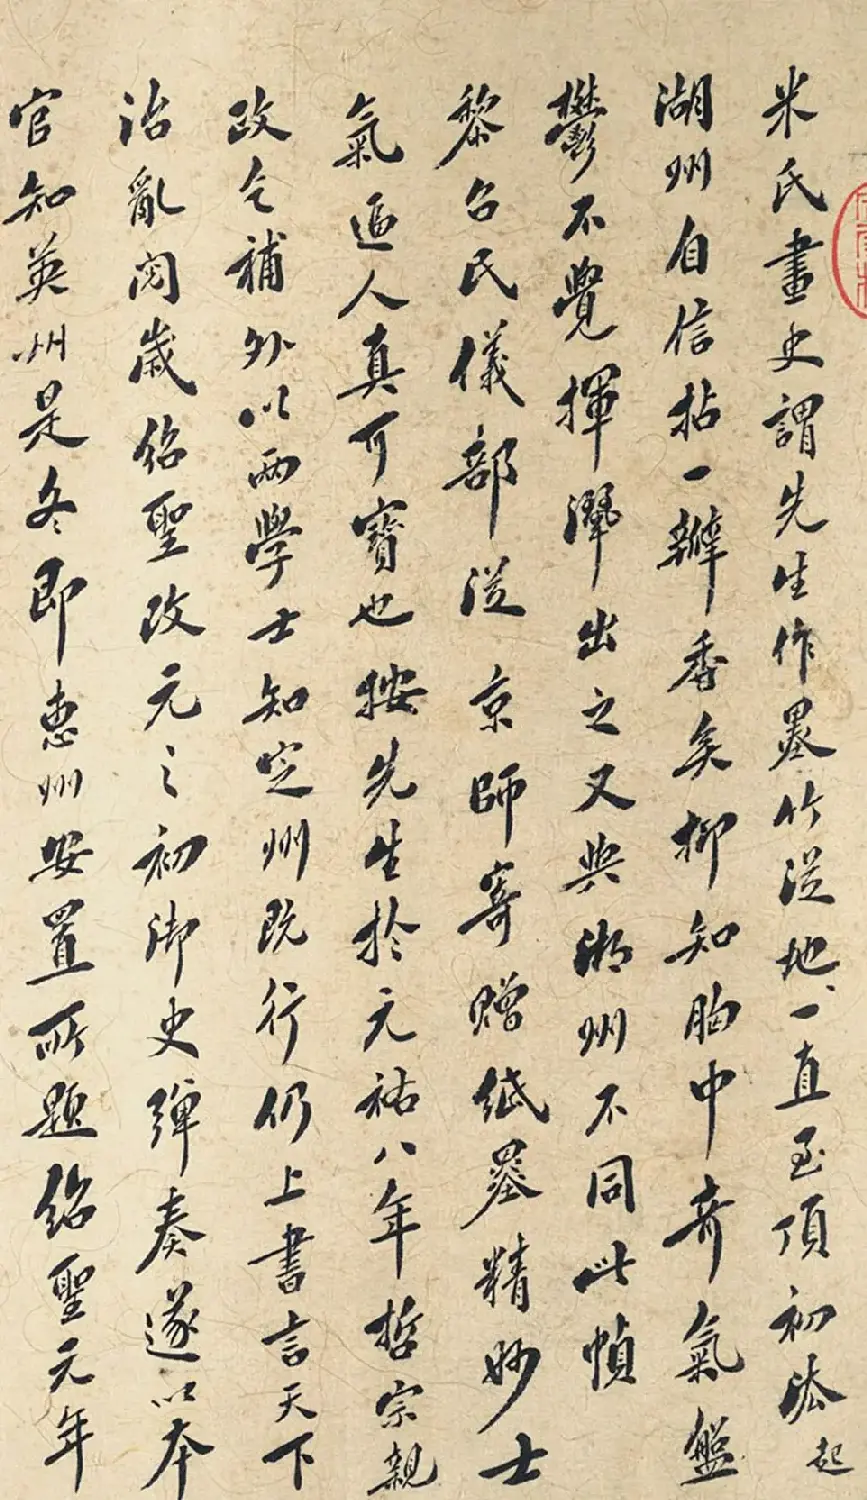 米氏畫史謂先生作墨竹從地一直至頂初法起
湖州自信拈一瓣香矣抑知胸中奇氣盤
鬱不覺揮灑出之又與湖州不同此幀
黎召民儀部從京師寄贈紙墨精妙士
氣逼人真可寶也按先生於元祐八年哲宗親
政乞補外以兩學士知定州既行仍上書言天下
治亂閱歲紹聖改元之初御史彈奏遂以本
官知英州是冬即惠州安置所題紹聖元年